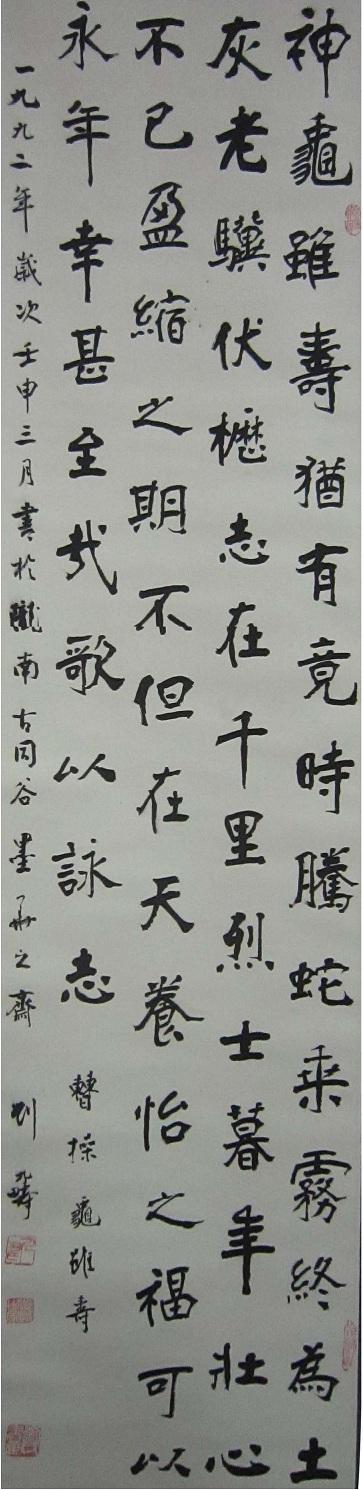 神龜雖壽猶有竟時騰蛇乘霧終為土
灰老驥伏櫪志在千里烈士暮年壯心
不已盈縮之期不但在天養怡之福可以
永年幸甚至哉歌以詠志
曹操龜雖壽
一九九二年歲次壬申三月書於隴南古同谷墨華之齋
劉